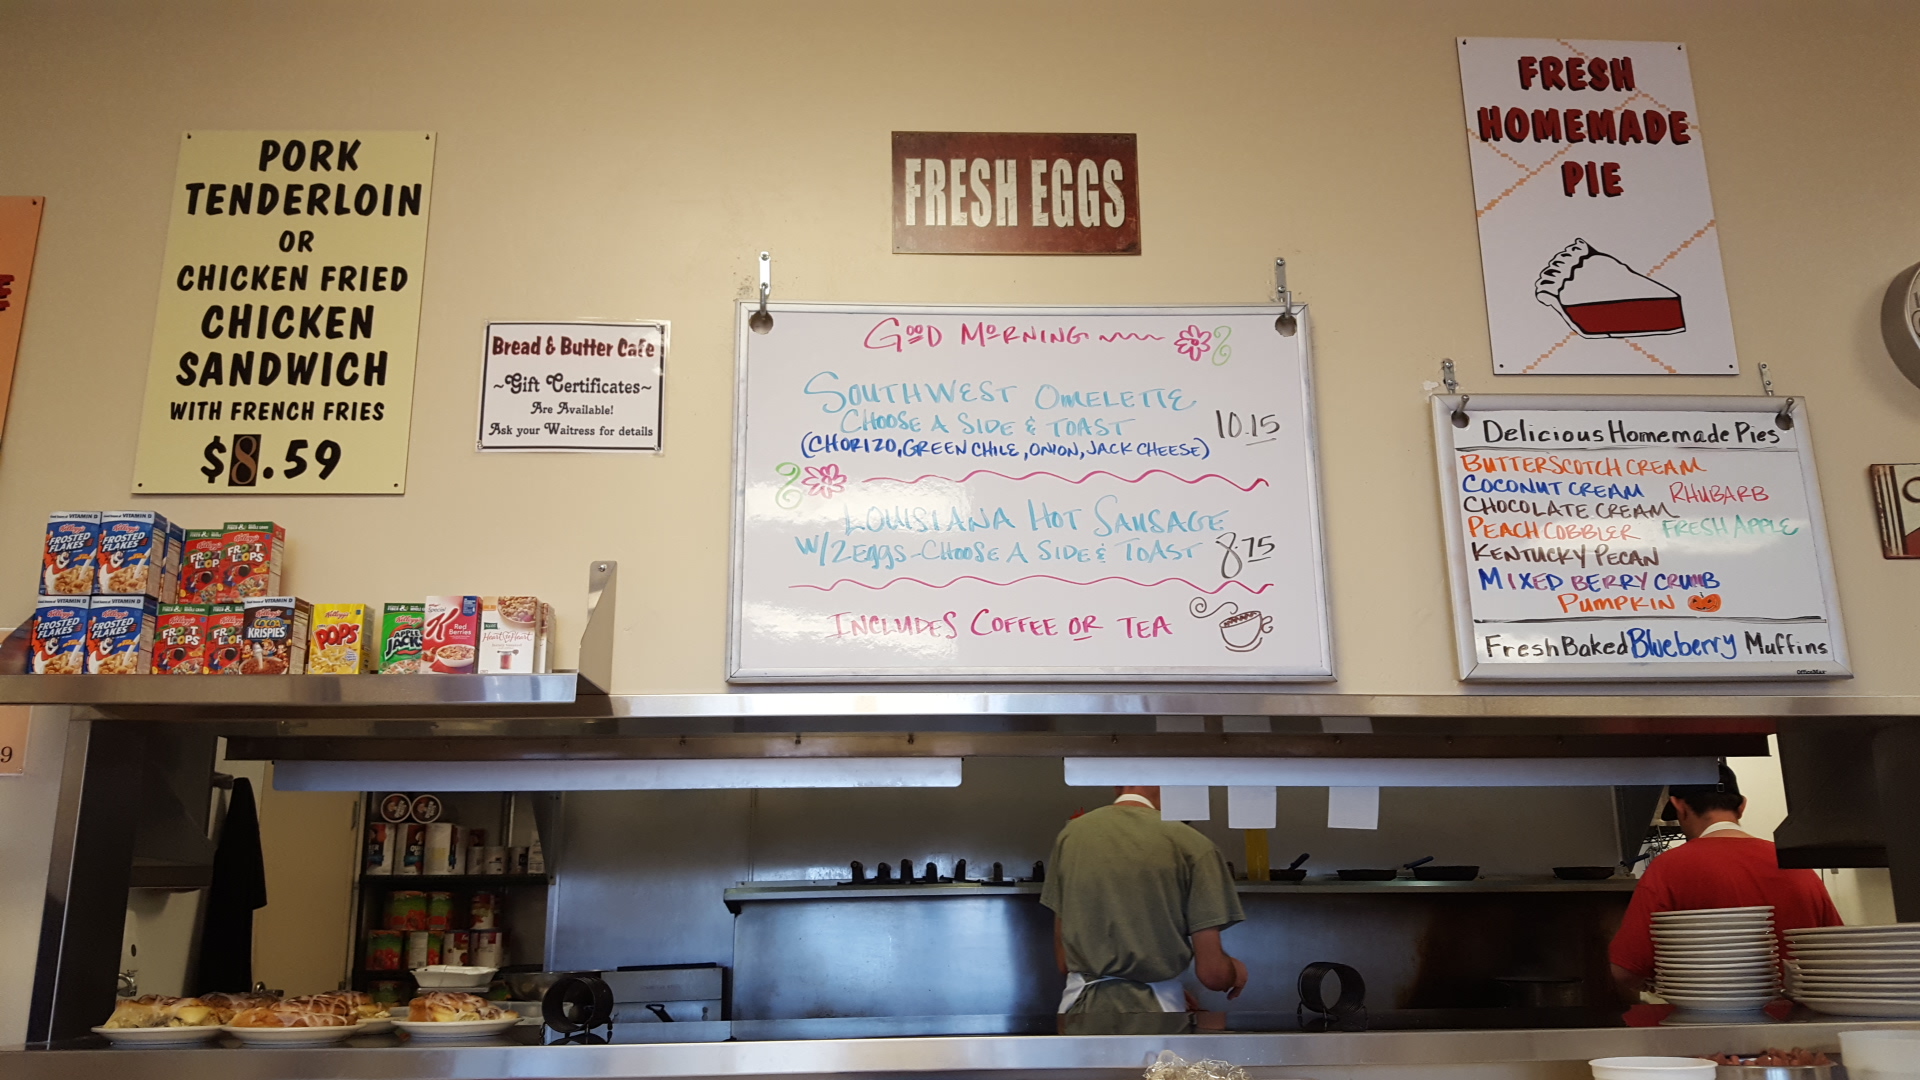 PORK
TENDERLOIN
OR
CHICKEN FRIED
CHICKEN
SANDWICH
WITH FRENCH FRIES
$8.59
Bread & Butter Cafe
~Gift Certificates~
Are Available!
Ask your Waitress for details
FRESH EGGS
GOOD MORNING
SOUTHWEST OMELETTE
CHOOSE A SIDE & TOAST 10.15
(CHORIZO, GREEN CHILE, ONION, JACK CHEESE)
LOUISIANA HOT SAUSAGE
W/2 EGGS - CHOOSE A SIDE & TOAST 8.75
INCLUDES COFFEE OR TEA
FRESH
HOMEMADE
PIE
Delicious Homemade Pies
BUTTERSCOTCH CREAM
COCONUT CREAM RHUBARB
CHOCOLATE CREAM
PEACH COBBLER FRESH APPLE
KENTUCKY PECAN
MIXED BERRY CRUMB
PUMPKIN
Fresh Baked Blueberry Muffins
OfficeMax
E
9
Kellogg's
FROSTED
FLAKES
Kellogg's
FROSTED
FLAKES
Kellogg's
FROOT
LOOPS
Kellogg's
FROSTED
FLAKES
Kellogg's
FROSTED
FLAKES
Kellogg's
FROOT
LOOPS
Kellogg's
COCOA
KRISPIES
Kellogg's
POPS
APPLE
JACKS
Special
K
Red
Berries
Heart to Heart